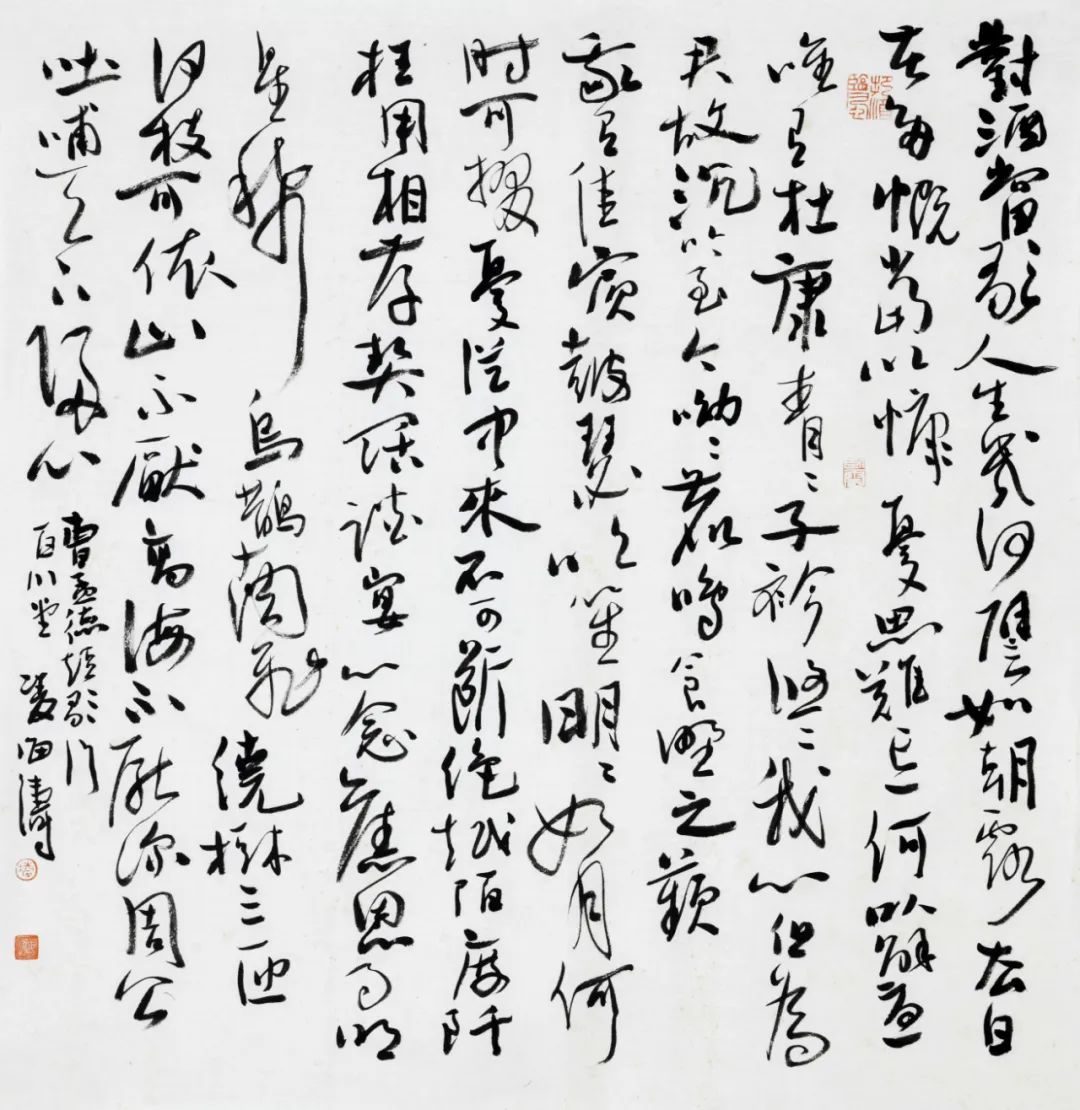 對酒當歌人生幾何譬如朝露去日
苦多慨當以慷憂思難忘何以解憂
唯有杜康青〻子衿悠〻我心但為
君故沉吟至今呦〻鹿鳴食野之蘋
我有佳賓鼓瑟吹笙明〻如月何
时可掇憂從中來不可斷絕越陌度阡
枉用相存契闊談宴心念舊恩月明
星稀烏鵲南飛繞樹三匝
何枝可依山不厭高海不厭深周公
吐哺天下歸心
曹孟德短歌行
百川堂凌海濤